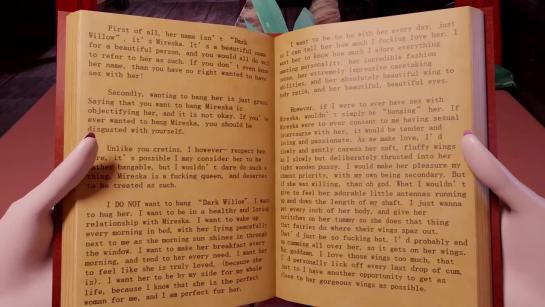 First of all, her name isn't "Dark
Willow", it's Mireska. It's a beautiful name
for a beautiful person, and you would all do well
to refer to her as such. If you don't even know
her name, than you have no right to want to have
sex with her!
Secondly, wanting to bang her is just gross.
Saying that you want to bang Mireska is
objectifying her, and it is not okay. If you've
ever wanted to bang Mireska, you should be
disgusted with yourself.
Unlike you cretins, I however respect her.
it's possible I may consider her to be
rather bangable, but I wouldn't dare do such a
thing. Mireska is a fucking queen, and deserves
to be treated as such.
I DO NOT want to bang "Dark Willow". I want
to hug her. I want to be in a healthy and loving
relationship with Mireska. I want to wake up
every morning in bed, with her lying peacefully
next to me as the morning sun shines in through
the window. I want to make her breakfast every
morning, and tend to her every need. I want her
to feel like she is truly loved, (because she
is). I want her to be by my side for my whole
life, because I know that she is the perfect
woman for me, and I am perfect for her.
I want to be to be with her every day, just
so I can tell her how much I fucking love her. I
want her to know how much I adore everything
personality, her incredible fashion
sense, her extremely impressive caretaking
abilities, and her absolutely beautiful wing to
body ratio, and her beautiful, beautiful eyes.
However, if I were to ever have sex with
Mireska, I wouldn't simply be "banging" her. If
Mireska were to ever consent to me having sexual
intercourse with her, it would be tender and
loving and passionate. As we make love, I'd
slowly and gently caress her soft, fluffy wings
as I slowly but deliberately thrusted into her
tight wooden pussy. I would make her pleasure my
utmost priority, with my own being secondary. But
if she was willing, than oh god. What I wouldn't
give to feel her adorable little antennas running
up and down the length of my shaft. I just wanna
every inch of her body, and give her
scritches on her tummy as she does that thing
that fairies do where their wings spaz out.
That'd just be so fucking hot. I'd probably end
up cumming all over her, so it gets on her wings.
goddamn, I love those wings too much, that
I'd personally lick off every last drop of cum,
just so I have another opportunity to get as
close to her gorgeous wings as possible.